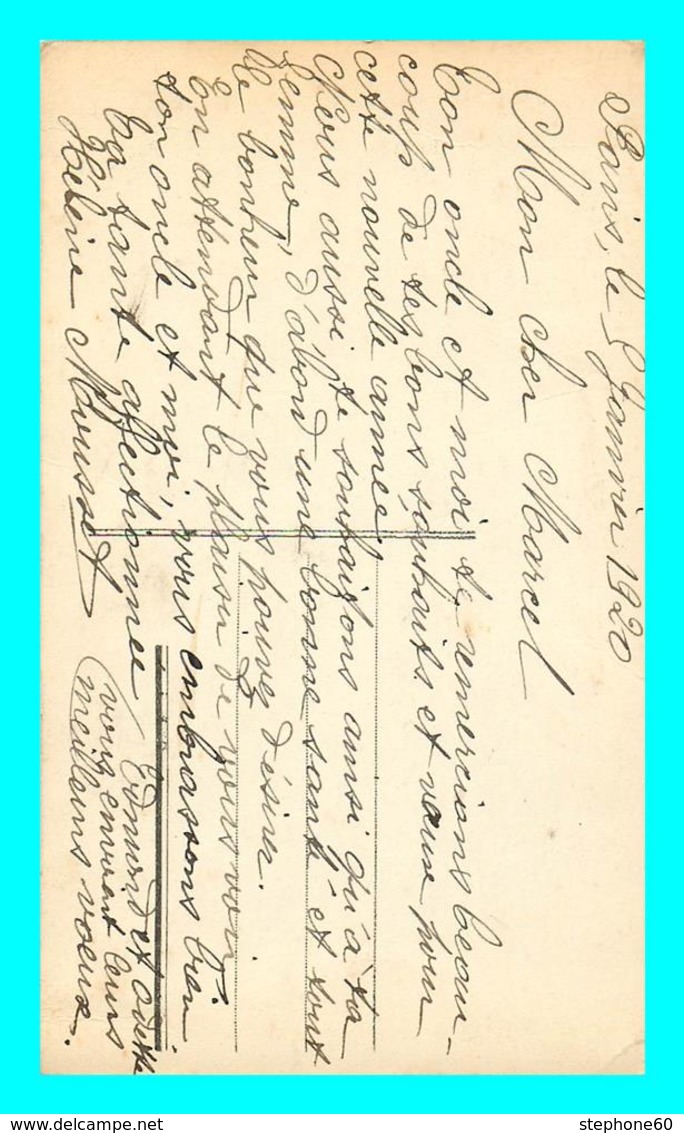 Paris, le 5 Janvier 1920
Mon cher Marcel
Ton oncle et moi te remercions beau-
coup de tes bons souhaits et vœux pour
cette nouvelle année.
Nous aussi te souhaitons ainsi qu'à ta
femme, d'abord une bonne santé et tout
le bonheur que vous pouvez désirer.
En attendant le plaisir de vous voir,
ton oncle et moi, vous embrassons bien
Ta tante affectionnée
Hélène Mousset
Edouard et Odette
vous envoient leurs
meilleurs voeux.
stephone60